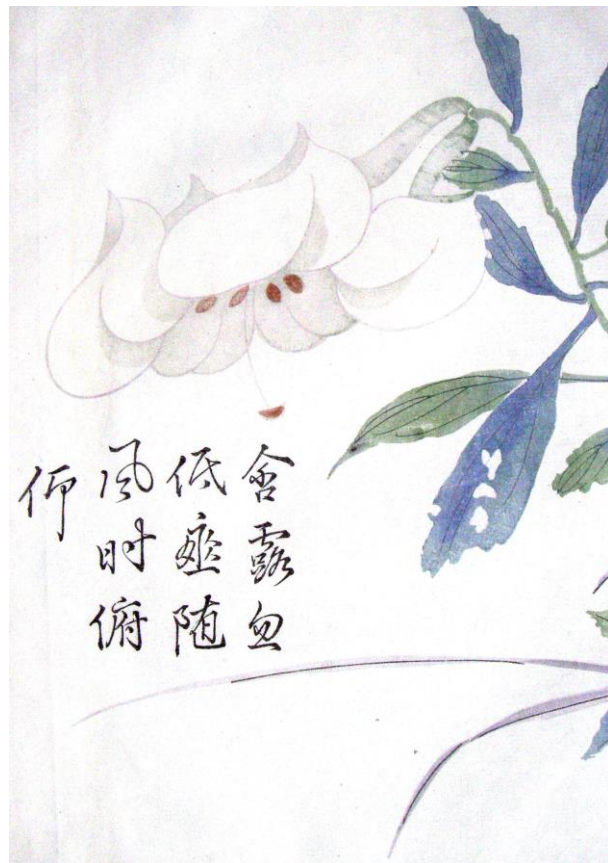 含露忽
低垂随
风时俯
仰